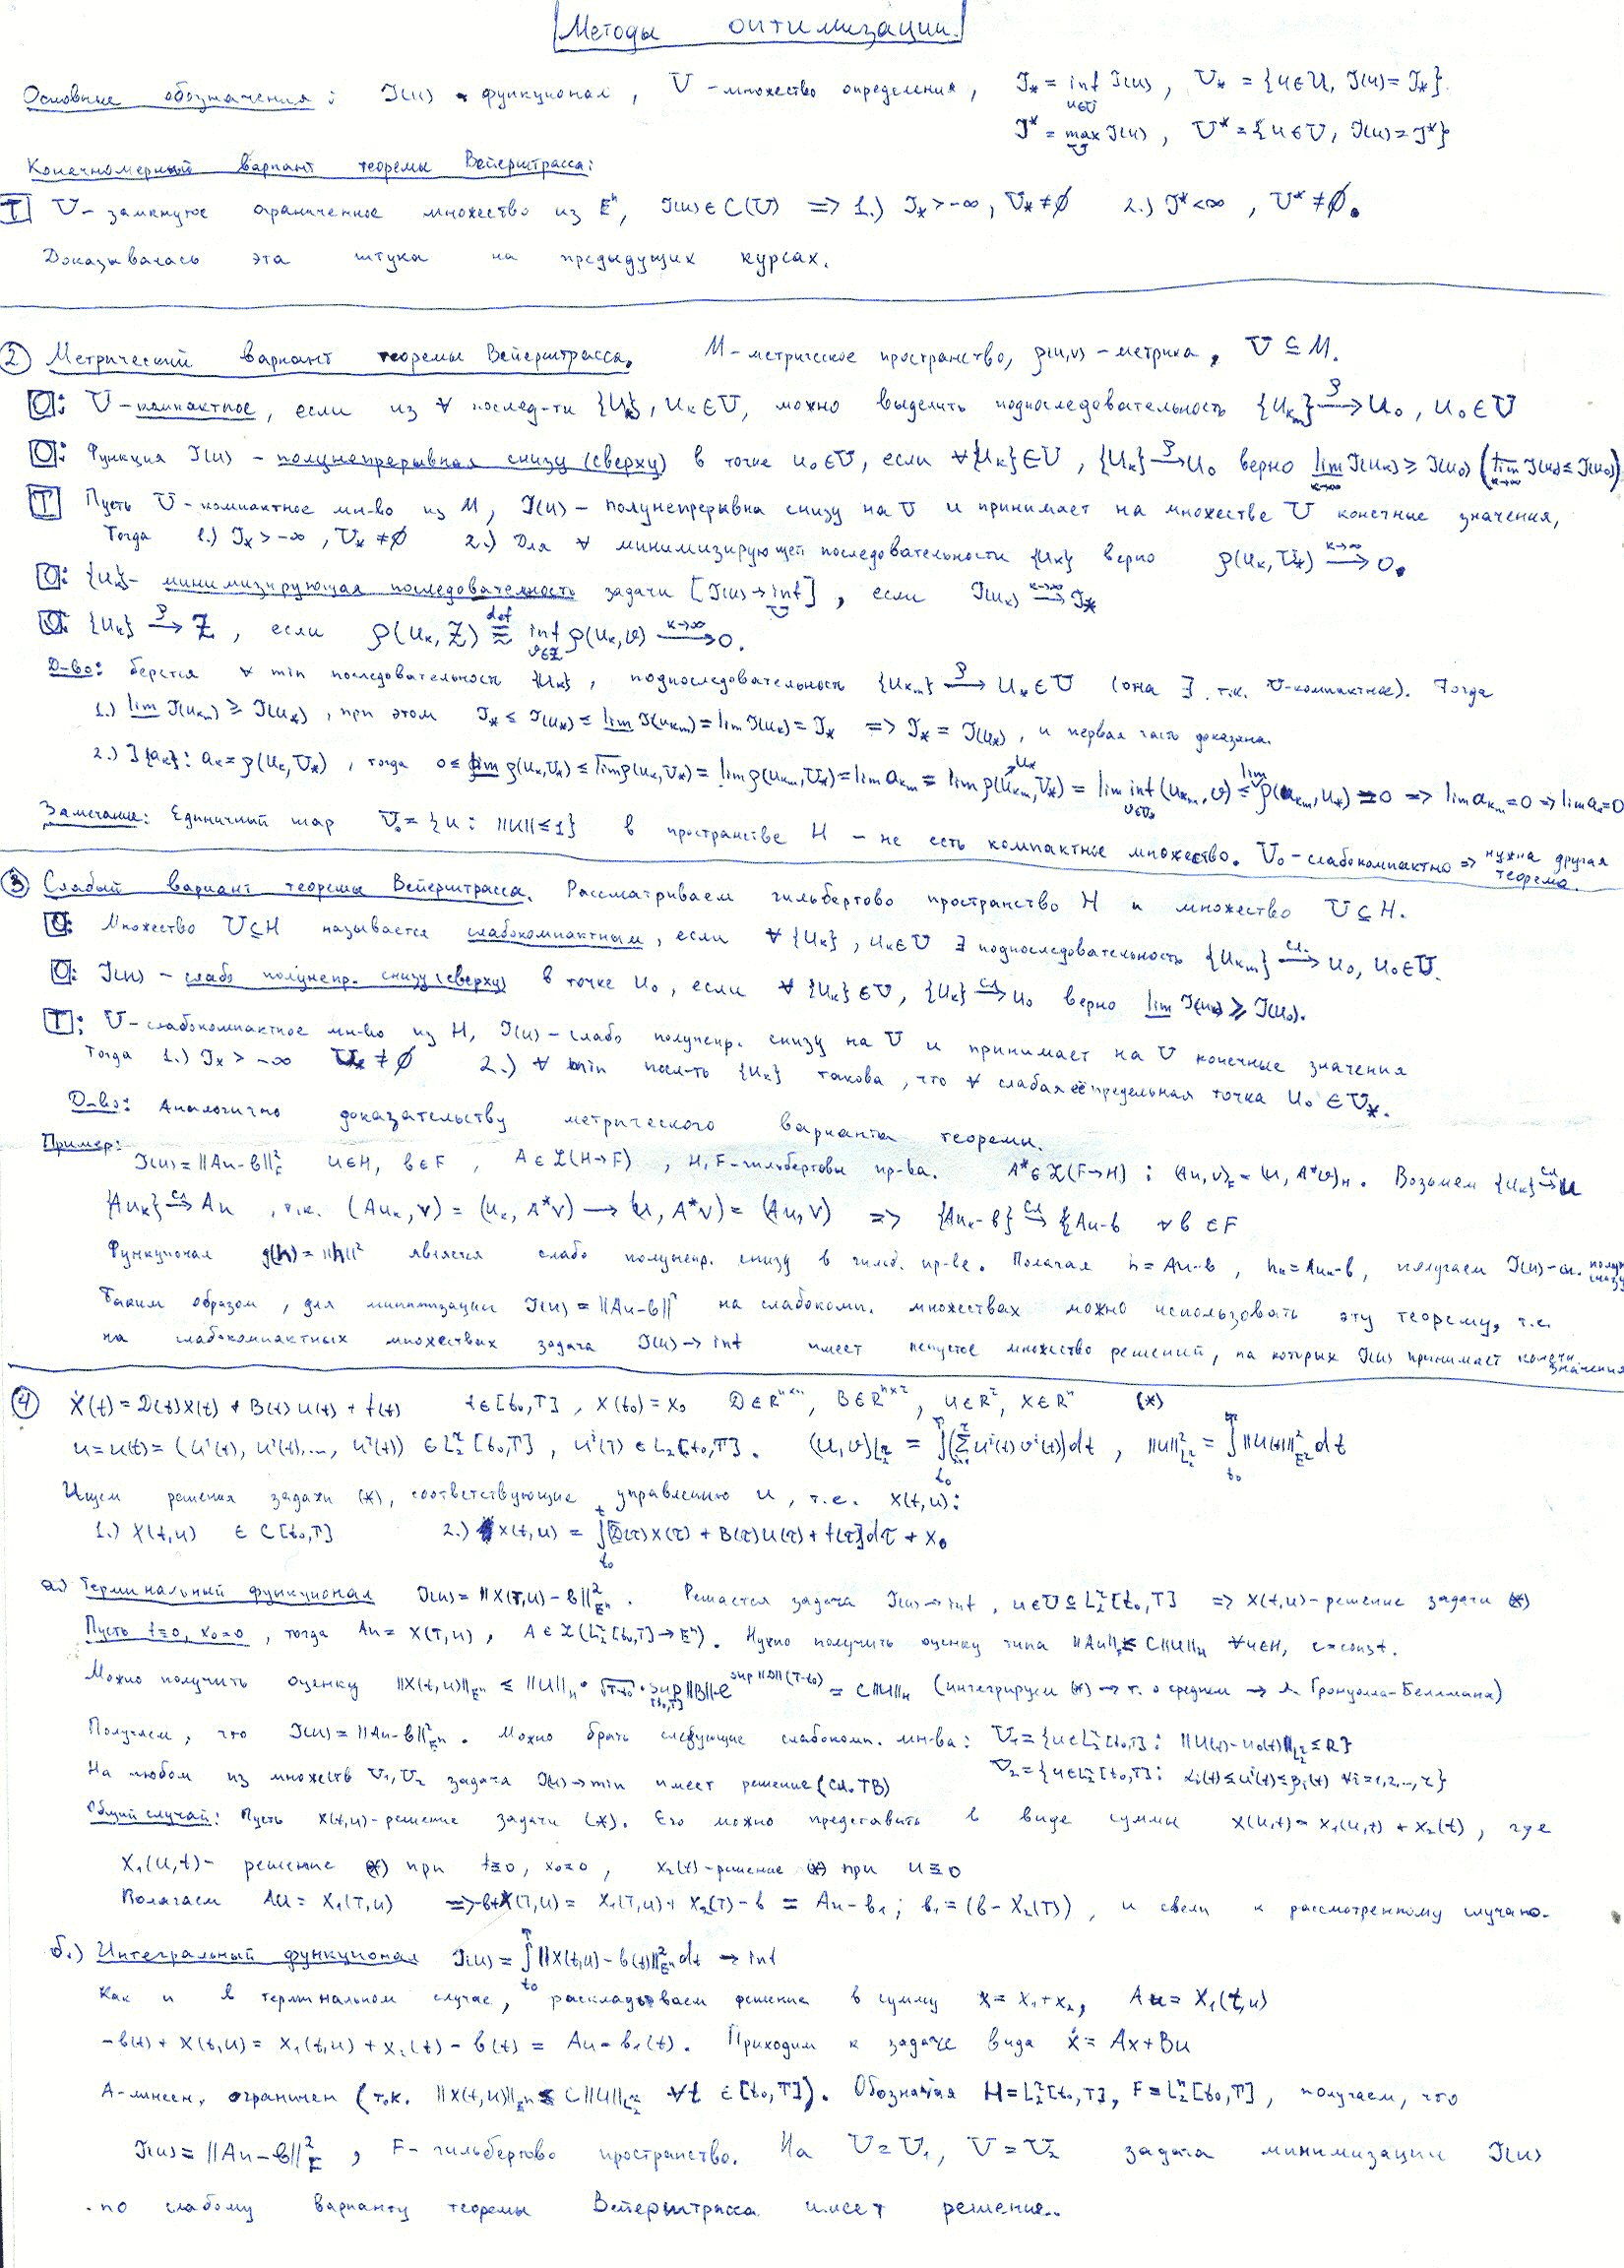 Методы оптимизации.
Основные обозначения: J(u) - функционал, U - множество определения, J* = inf J(u), U* = {u∈U, J(u)=J*}.
u∈U
J* = max J(u), U* = {u∈U, J(u)=J*}
U
Конечномерный вариант теоремы Вейерштрасса:
T U - замкнутое ограниченное множество из Eⁿ, J(u)∈C(U) => 1.) J* > -∞, U* ≠ ∅ 2.) J* < ∞, U* ≠ ∅.
Доказывалась эта штука на предыдущих курсах.
2 Метрический вариант теоремы Вейерштрасса. M - метрическое пространство, ρ(u,v) - метрика, U ⊆ M.
O: U - компактное, если из ∀ послед-ти {uₖ}, uₖ∈U, можно выделить подпоследовательность {uₖₘ} →ρ u₀, u₀∈U
O: Функция J(u) - полунепрерывная снизу (сверху) в точке u₀∈U, если ∀{uₖ}∈U, {uₖ} →ρ u₀ верно lim J(uₖ) ≥ J(u₀) (lim J(uₖ) ≤ J(u₀))
T Пусть U - компактное мн-во из M, J(u) - полунепрерывна снизу на U и принимает на множестве U конечные значения,
Тогда 1.) J* > -∞, U* ≠ ∅ 2.) Для ∀ минимизирующей последовательности {uₖ} верно ρ(uₖ, U*) → 0. k→∞
O: {uₖ} - минимизирующая последовательность задачи [J(u) → inf], если J(uₖ) → J* k→∞
O: {uₖ} →ρ Z, если ρ(uₖ, Z) def= inf ρ(uₖ, v) → 0. v∈Z k→∞
Д-во: берется ∀ min последовательность {uₖ}, подпоследовательность {uₖₘ} →ρ u* ∈ U (она ∃, т.к. U - компактное). Тогда
1.) lim J(uₖₘ) ≥ J(u*), при этом J* ≤ J(u*) ≤ lim J(uₖₘ) = lim J(uₖ) = J* => J* = J(u*), и первая часть доказана.
2.) ∃{aₖ}: aₖ = ρ(uₖ, U*), тогда 0 ≤ lim ρ(uₖ, U*) ≤ lim ρ(uₖ, U*) = lim ρ(uₖₘ, U*) = lim aₖₘ = lim ρ(uₖₘ, U*) = lim inf (uₖₘ, v) ≤ lim ρ(uₖₘ, u*) = 0 => lim aₖₘ = 0 => lim aₖ = 0
Замечание: Единичный шар U₀ = {u: ||u|| ≤ 1} в пространстве H - не есть компактное множество. U₀ - слабокомпактно => нужна другая теорема.
3 Слабый вариант теоремы Вейерштрасса. Рассматриваем гильбертово пространство H и множество U ⊆ H.
O: Множество U⊆H называется слабокомпактным, если ∀ {uₖ}, uₖ∈U ∃ подпоследовательность {uₖₘ} →сл. u₀, u₀∈U.
O: J(u) - слабо полунепр. снизу (сверху) в точке u₀, если ∀ {uₖ}∈U, {uₖ} →сл u₀ верно lim J(uₖ) ≥ J(u₀).
T: U - слабокомпактное мн-во из H, J(u) - слабо полунепр. снизу на U и принимает на U конечные значения
Тогда 1.) J* > -∞ U* ≠ ∅ 2.) ∀ min посл-ть {uₖ} такова, что ∀ слабая её предельная точка u₀ ∈ U*.
Д-во: Аналогично доказательству метрического варианта теоремы.
Пример:
J(u) = ||Au-b||²_F u∈H, b∈F, A∈L(H→F), H, F - гильбертовы пр-ва. A*∈L(F→H): (Au,v)_F = (u, A*v)_H. Возьмем {uₖ} →сл u
{Auₖ} →сл Au, т.к. (Auₖ, v) = (uₖ, A*v) → (u, A*v) = (Au, v) => {Auₖ-b} →сл {Au-b ∀b∈F
Функционал g(h) = ||h||² является слабо полунепр. снизу в гильб. пр-ве. Полагая h = Au-b, hₖ = Auₖ-b, получаем J(u) - сл. полун. снизу
Таким образом, для минимизации J(u) = ||Au-b||² на слабокомп. множествах можно использовать эту теорему, т.е.
на слабокомпактных множествах задача J(u) → inf имеет непустое множество решений, на которых J(u) принимает конечн. значения
4 ẋ(t) = D(t)x(t) + B(t)u(t) + f(t) t∈[t₀,T], x(t₀) = x₀ D∈Rⁿˣⁿ, B∈Rⁿˣʳ, u∈Rʳ, x∈Rⁿ (*)
u = u(t) = (u¹(t), u²(t),..., uʳ(t)) ∈ L₂ʳ[t₀,T], uⁱ(t) ∈ L₂[t₀,T]. (u,v)L₂ʳ = ∫(Σuⁱ(t)vⁱ(t))dt, ||u||²L₂ʳ = ∫||u(t)||²Eʳ dt
Ищем решения задачи (*), соответствующие управлению u, т.е. x(t,u):
1.) x(t,u) ∈ C[t₀,T] 2.) x(t,u) = ∫[D(τ)x(τ) + B(τ)u(τ) + f(τ)]dτ + x₀
а.) Терминальный функционал J(u) = ||x(T,u) - b||²Eⁿ. Решается задача J(u) → inf, u∈U⊆L₂ʳ[t₀,T] => x(t,u) - решение задачи (*)
Пусть f≡0, x₀=0, тогда Au = x(T,u), A∈L(L₂ʳ[t₀,T]→Eⁿ). Нужно получить оценку типа ||Au|| ≤ C||u||_H ∀u∈H, c=const.
Можно получить оценку ||x(t,u)||Eⁿ ≤ ||u||_H · √(T-t₀) · sup||B|| · e^(sup||D||(T-t₀)) = C||u||_H (интегрируем (*) → т. о среднем → л. Гронуолла-Беллмана)
Получаем, что J(u) = ||Au-b||²Eⁿ. Можно брать следующие слабокомп. мн-ва: U₁ = {u∈L₂ʳ[t₀,T]: ||u(t)-u₀(t)||L₂ʳ ≤ R}
На любом из множеств U₁, U₂ задача J(u) → min имеет решение (сл. ТВ) U₂ = {u∈L₂ʳ[t₀,T]: αᵢ(t) ≤ uⁱ(t) ≤ βᵢ(t) ∀i=1,2,...,r}
Общий случай: Пусть x(t,u) - решение задачи (*). Его можно представить в виде суммы x(u,t) = x₁(u,t) + x₂(t), где
x₁(u,t) - решение (*) при f≡0, x₀=0, x₂(t) - решение (*) при u≡0
Полагаем Au = x₁(T,u) => -b+x(T,u) = x₁(T,u) + x₂(T) - b = Au - b₁; b₁ = (b - x₂(T)), и свели к рассмотренному случаю.
б.) Интегральный функционал J(u) = ∫||x(t,u) - b(t)||²Eⁿ dt → inf
Как и в терминальном случае, раскладываем решение в сумму x = x₁+x₂, Au = x₁(t,u)
-b(t) + x(t,u) = x₁(t,u) + x₂(t) - b(t) = Au - b₁(t). Приходим к задаче вида ẋ = Ax+Bu
A - линеен, ограничен (т.к. ||x(t,u)||Eⁿ ≤ C||u||L₂ʳ ∀t∈[t₀,T]). Обозначая H = L₂ʳ[t₀,T], F = L₂ⁿ[t₀,T], получаем, что
J(u) = ||Au-b||²_F, F - гильбертово пространство. На U=U₁, U=U₂ задача минимизации J(u)
по слабому варианту теоремы Вейерштрасса имеет решение..